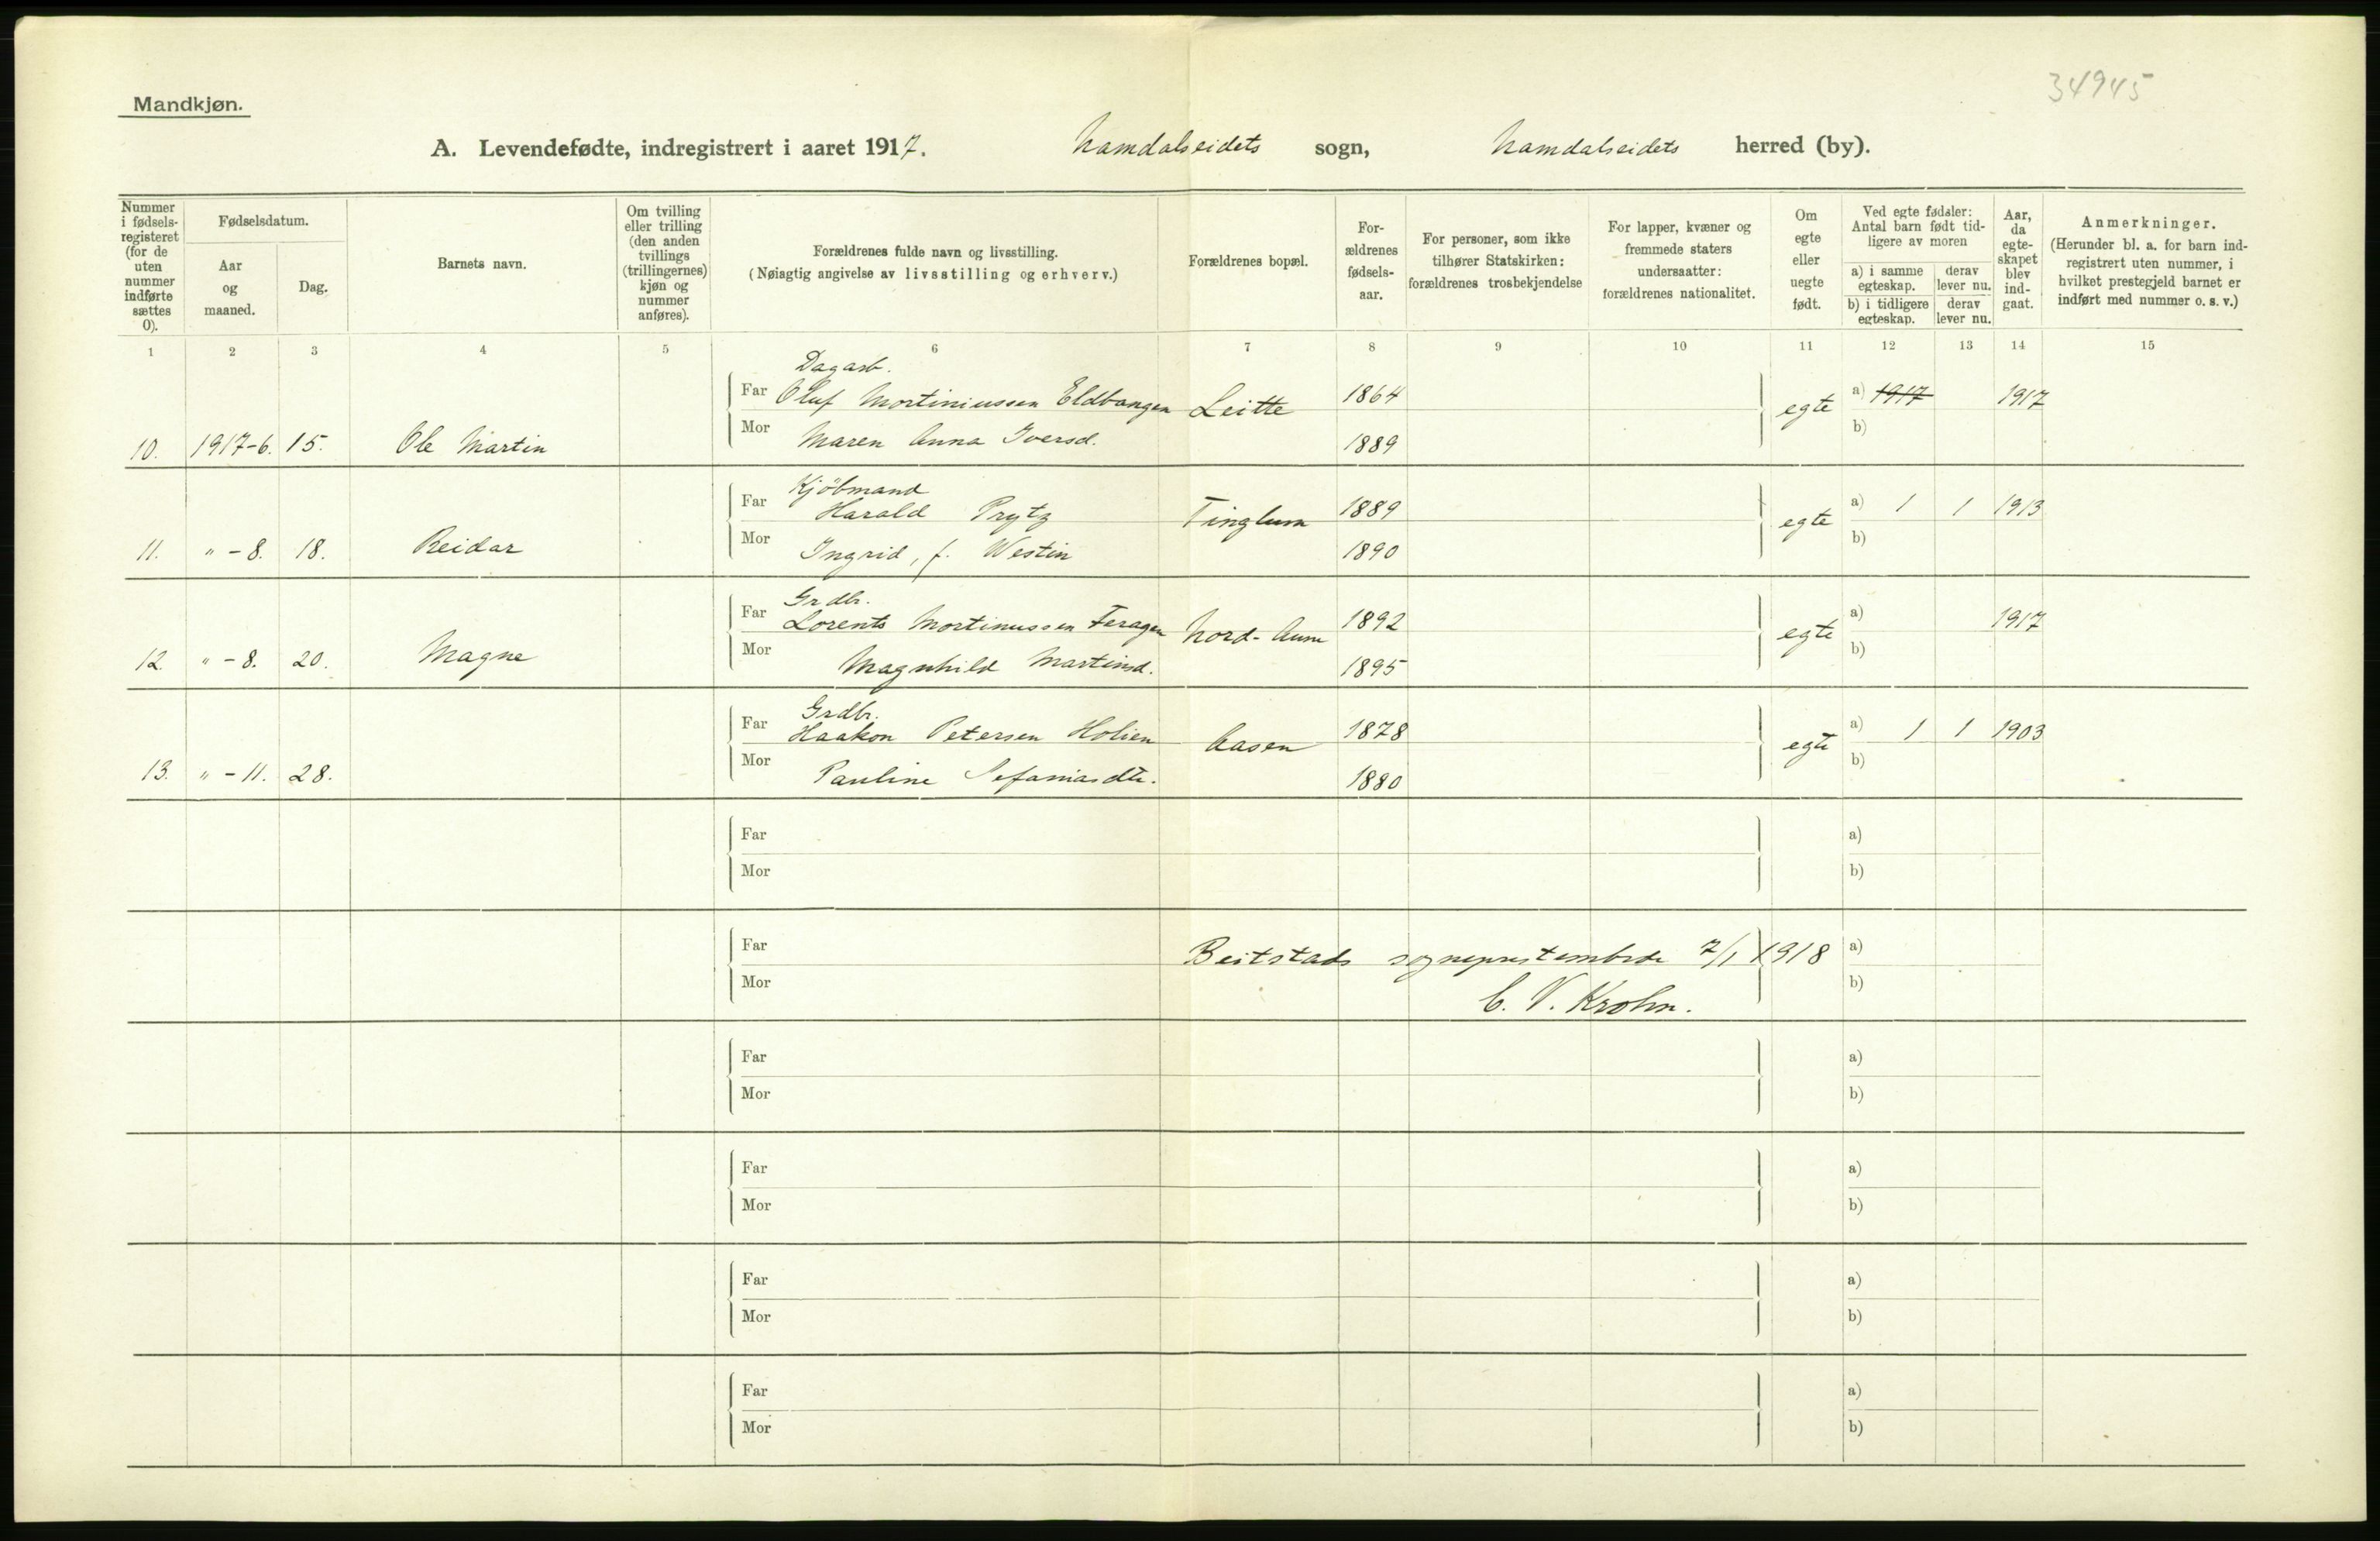 34945
Mandkjøn.
A. Levendefødte, indregistrert i aaret 1917. Namdalseidets sogn, Namdalseidets herred (by).
Nummer i fødselsregisteret (for de uten nummer indførte sættes 0).
Fødselsdatum.
Aar og maaned.
Dag.
Barnets navn.
Om tvilling eller trilling (den anden tvillings (trillingernes) kjøn og nummer anføres).
Forældrenes fulde navn og livsstilling.
(Nøiagtig angivelse av livsstilling og erhverv.)
Forældrenes bopæl.
Forældrenes fødselsaar.
For personer, som ikke tilhører Statskirken: forældrenes trosbekjendelse
For lapper, kvæner og fremmede staters undersaatter: forældrenes nationalitet.
Om egte eller uegte født.
Ved egte fødsler: Antal barn født tidligere av moren
a) i samme egteskap. derav lever nu.
b) i tidligere egteskap. derav lever nu.
Aar, da egteskapet blev indgaat.
Anmerkninger.
(Herunder bl. a. for barn indregistrert uten nummer, i hvilket prestegjeld barnet er indført med nummer o. s. v.)
1 2 3 4 5 6 7 8 9 10 11 12 13 14 15
Dagarb.
Far Oluf Mortiniussen Eldbangen Leitte 1864 egte a) 1917 1917
10. 1917-6. 15. Ole Martin Mor Maren Anna Iversd. 1889 b)
Kjöbmand
Far Harald Prytz Tinglum 1889 egte a) 1 1 1913
11. " - 8. 18. Reidar Mor Ingrid, f. Westin 1890 b)
Grdbr.
Far Lorents Mortinussen Feragen Nord-Aum 1892 egte a) 1917
12. " - 8. 20. Magne Mor Magnhild Martinsd. 1895 b)
Grdbr.
Far Haakon Petersen Holien Aasen 1878 egte a) 1 1 1903
13. " - 11. 28. Mor Pauline Sefaniasdtr. 1880 b)
Far a)
Mor b)
Far Beitstads sogneprestembede 7/1 1918 a)
Mor C. V. Krohn. b)
Far a)
Mor b)
Far a)
Mor b)
Far a)
Mor b)
Far a)
Mor b)